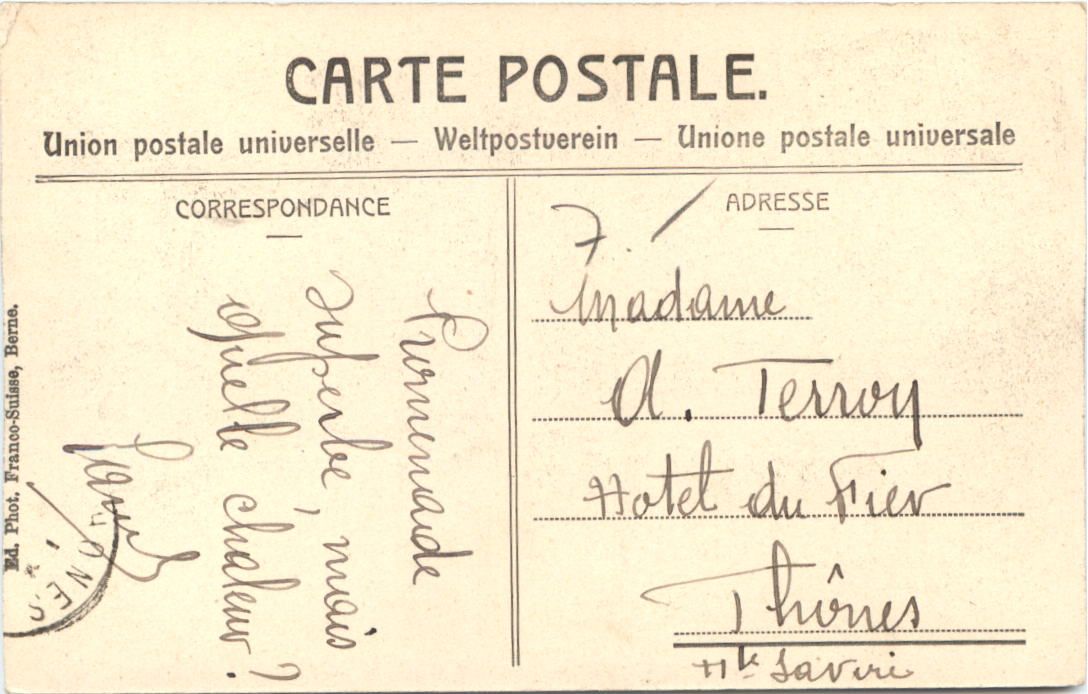 CARTE POSTALE.
Union postale universelle — Weltpostverein — Unione postale universale
CORRESPONDANCE
Promenade
superbe, mais
quelle chaleur!
Louis
ADRESSE
7.
Madame
A. Terroy
Hotel du Fier
Thônes
Hte Savoie
Ed. Phot. Franco-Suisse, Berne.